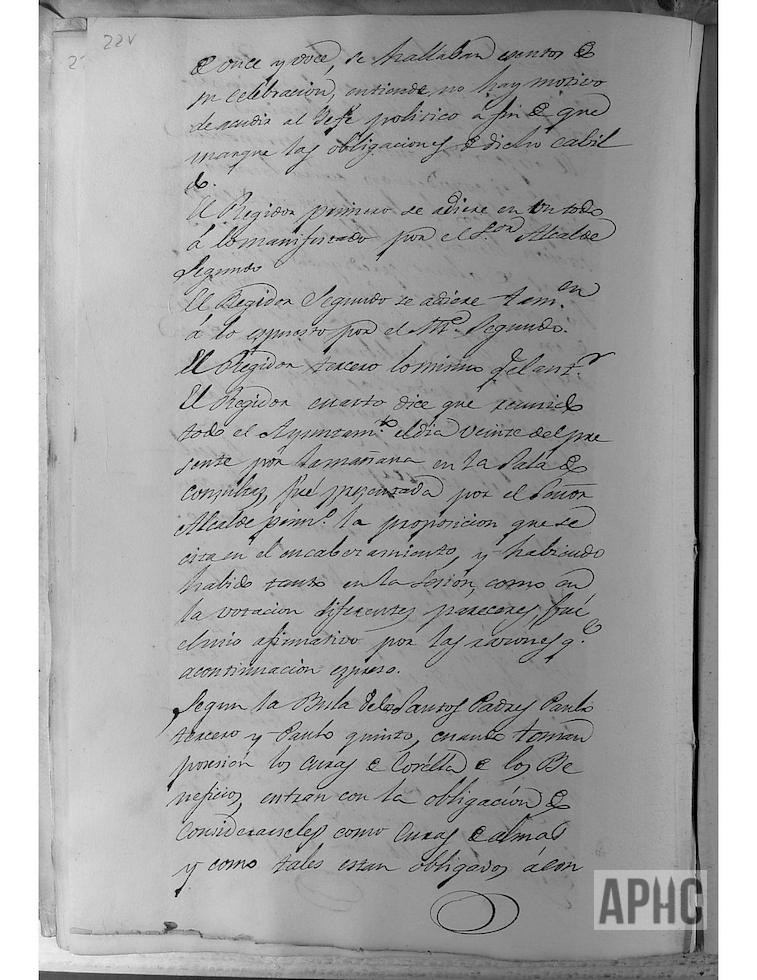 22v
de once y doce, se hallaban esentos de
su celebracion, entiende, no hay motivo
de acudir al Jefe politico á fin de que
marque las obligaciones de dicho cabil
do.
El Regidor primero se adiere en un todo
á lo manifestado por el S.or Alcalde
Segundo
El Regidor Segundo se adiere tam.en
á lo espuesto por el Segundo.
El Regidor tercero lo mismo q.e el ant.r
El Regidor cuarto dice que reunido
todo el Ayuntam.to el dia veinte del pre
sente por la mañana en la Sala de
Consultas, fué presentada por el Señor
Alcalde prim.o la proposicion que se
cita en el encabezamiento, y habiendo
habido tanto en la sesion, como en
la votacion diferentes pareceres, fué
el mio afirmativo por las razones q.e
acontinuacion espreso.
Segun la Bula de los Santos Padres Paulo
tercero y Paulo quinto, cuando toman
posesion los curas de Corella de los Be
neficios, entran con la obligacion de
considerarseles como curas de almas
y como tales estan obligados á con
APHC